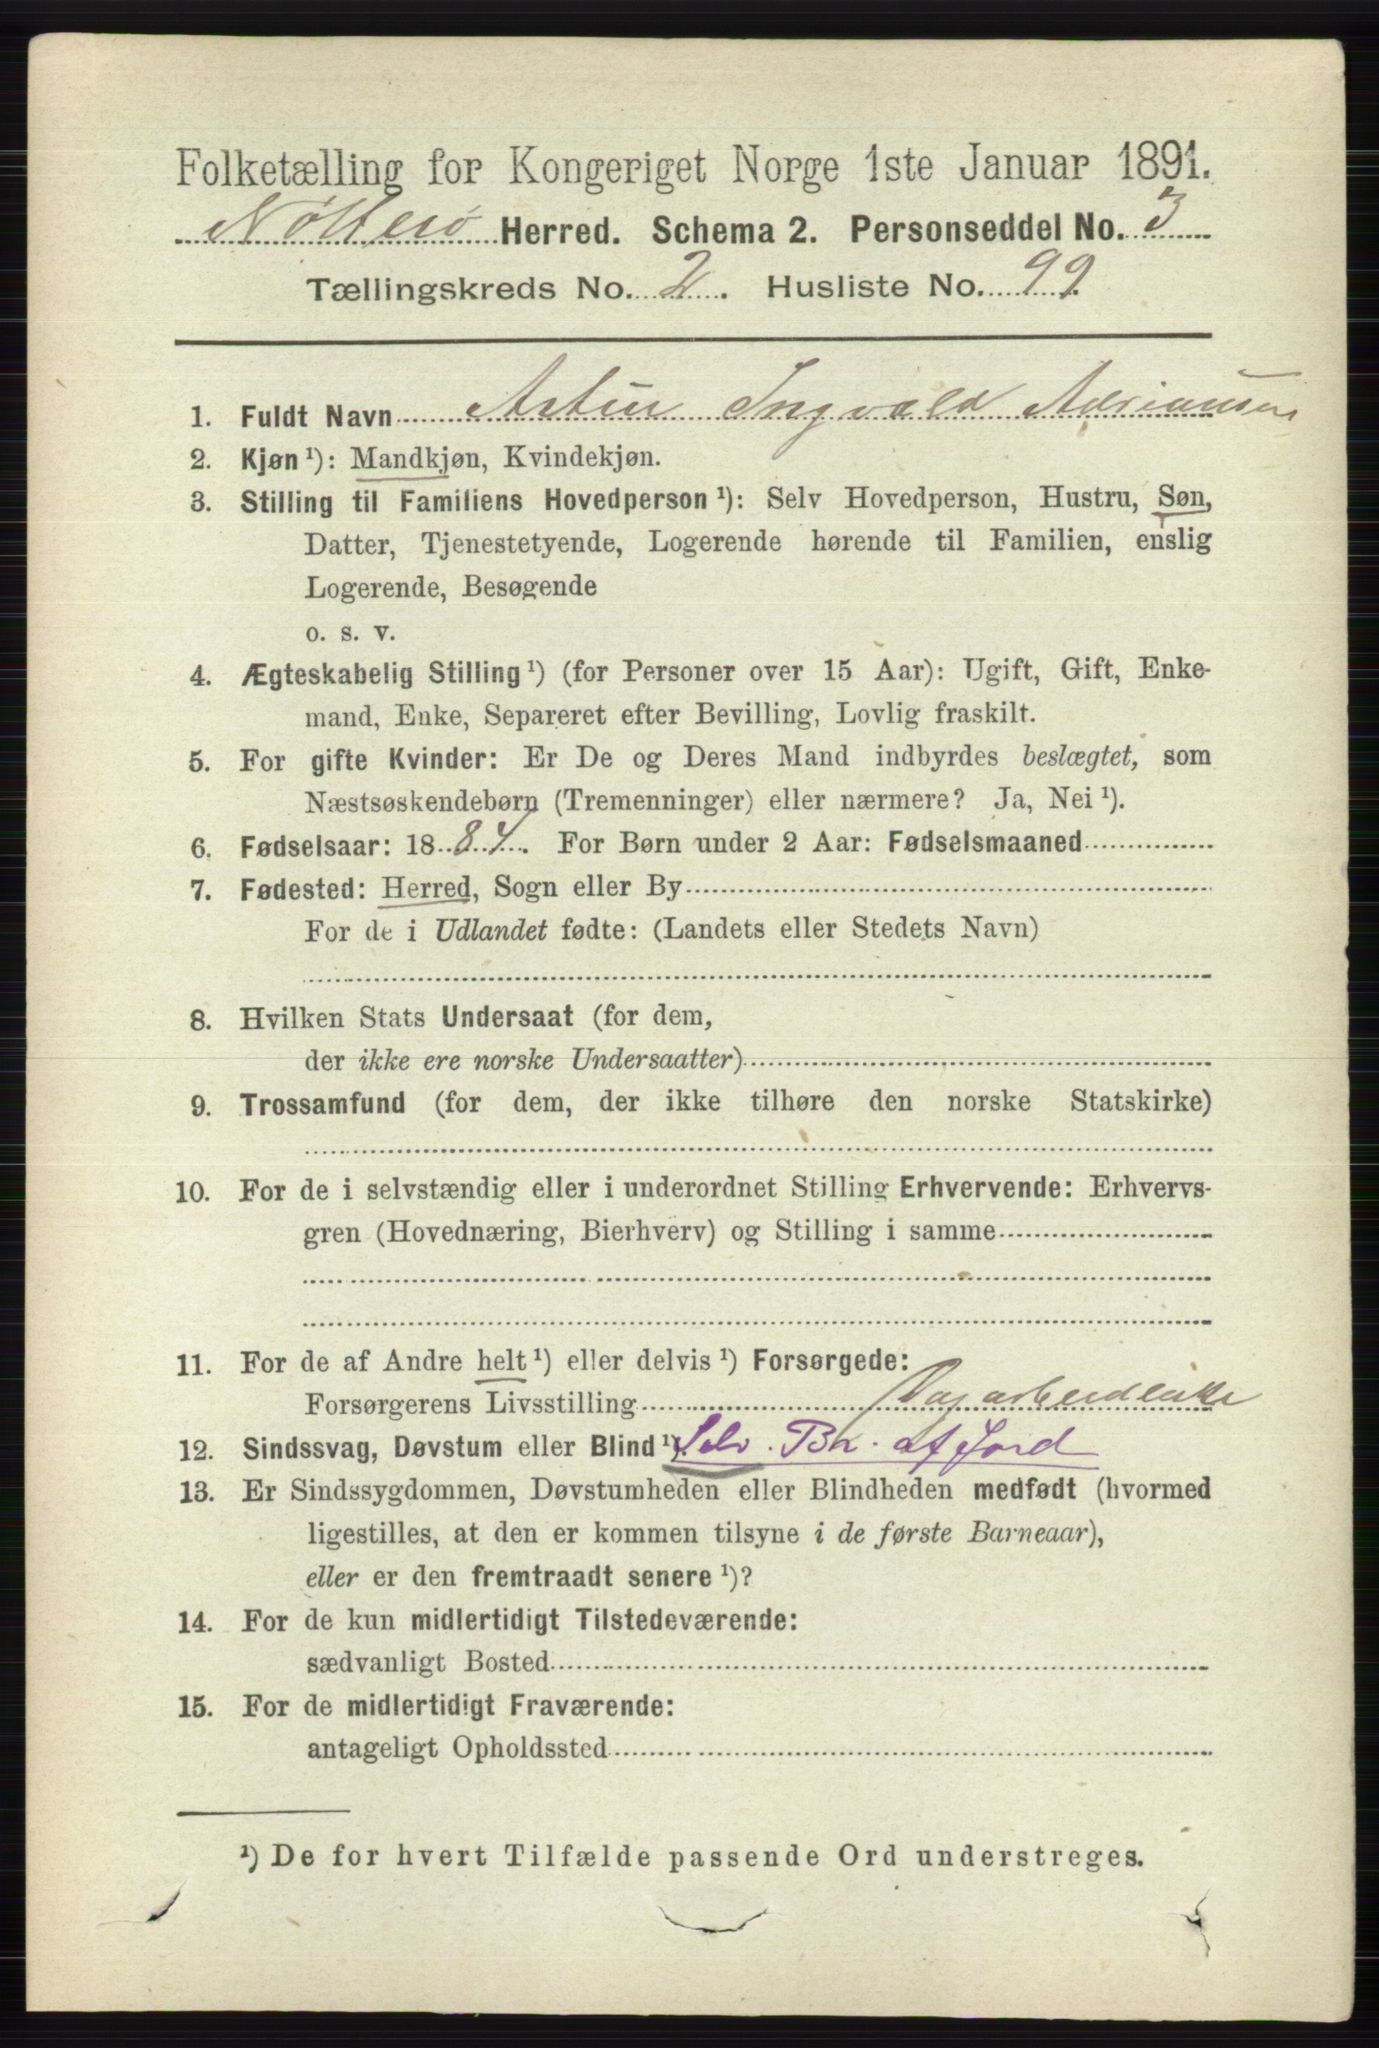 Folketælling for Kongeriget Norge 1ste Januar 1891.
Nøtterø Herred. Schema 2. Personseddel No. 3
Tællingskreds No. 2. Husliste No. 99.
1. Fuldt Navn Artur Ingvald Adriansen
2. Kjøn ¹): Mandkjøn, Kvindekjøn.
3. Stilling til Familiens Hovedperson ¹): Selv Hovedperson, Hustru, Søn,
Datter, Tjenestetyende, Logerende hørende til Familien, enslig
Logerende, Besøgende
o. s. v.
4. Ægteskabelig Stilling ¹) (for Personer over 15 Aar): Ugift, Gift, Enke-
mand, Enke, Separeret efter Bevilling, Lovlig fraskilt.
5. For gifte Kvinder: Er De og Deres Mand indbyrdes beslægtet, som
Næstsøskendebørn (Tremenninger) eller nærmere? Ja, Nei ¹).
6. Fødselsaar: 1884. For Børn under 2 Aar: Fødselsmaaned
7. Fødested: Herred, Sogn eller By
For de i Udlandet fødte: (Landets eller Stedets Navn)
8. Hvilken Stats Undersaat (for dem,
der ikke ere norske Undersaatter)
9. Trossamfund (for dem, der ikke tilhøre den norske Statskirke)
10. For de i selvstændig eller i underordnet Stilling Erhvervende: Erhvervs-
gren (Hovednæring, Bierhverv) og Stilling i samme
11. For de af Andre helt ¹) eller delvis ¹) Forsørgede:
Forsørgerens Livsstilling
12. Sindssvag, Døvstum eller Blind ¹). Selv. Br. af Jord
13. Er Sindssygdommen, Døvstumheden eller Blindheden medfødt (hvormed
ligestilles, at den er kommen tilsyne i de første Barneaar),
eller er den fremtraadt senere ¹)?
14. For de kun midlertidigt Tilstedeværende:
sædvanligt Bosted
15. For de midlertidigt Fraværende:
antageligt Opholdssted
¹) De for hvert Tilfælde passende Ord understreges.